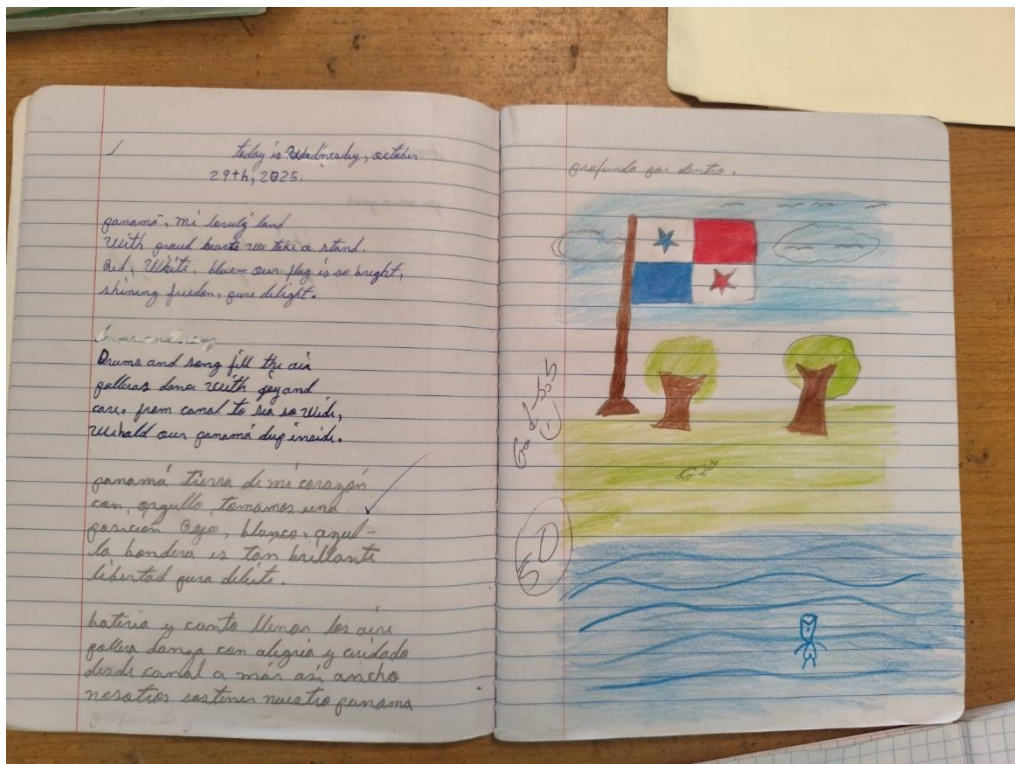 today is Wednesday, october
29th, 2025.
panamá, mi lovely land
With proud hearts we take a stand.
Red, White, blue- our flag is so bright,
shining freedom, pure delight.
Drums and song fill the air
polleras danc With joy and
care. from canal to sea so Wide,
We hold our panamá deep inside.
panamá tierra de mi corazón
con orgullo tomamos una
posición Rojo, blanco, azul-
la bandera is tan brillante
libertad pura delite.
bateria y canto llenar los aire
pollera danza con alegria y cuidado
desde canal a más asi ancho
nosotros sostener nuestro panama
profundo por dentro.
50